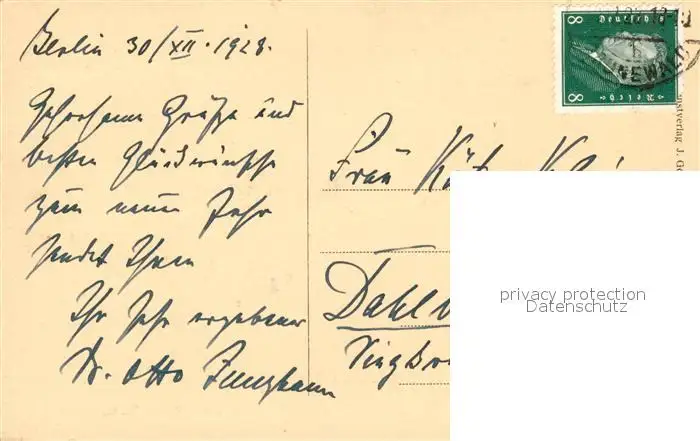 Berlin 30/XII. 1928.
Gehorsame Grüße und
besten Glückwünsche
zum neuen Jahr
sendet Ihnen
Ihr sehr ergebener
Dr. Otto
Frau
Dahl
8 Deutsches 8
Reich
NEWALD
stverlag J. Go
privacy protection
Datenschutz